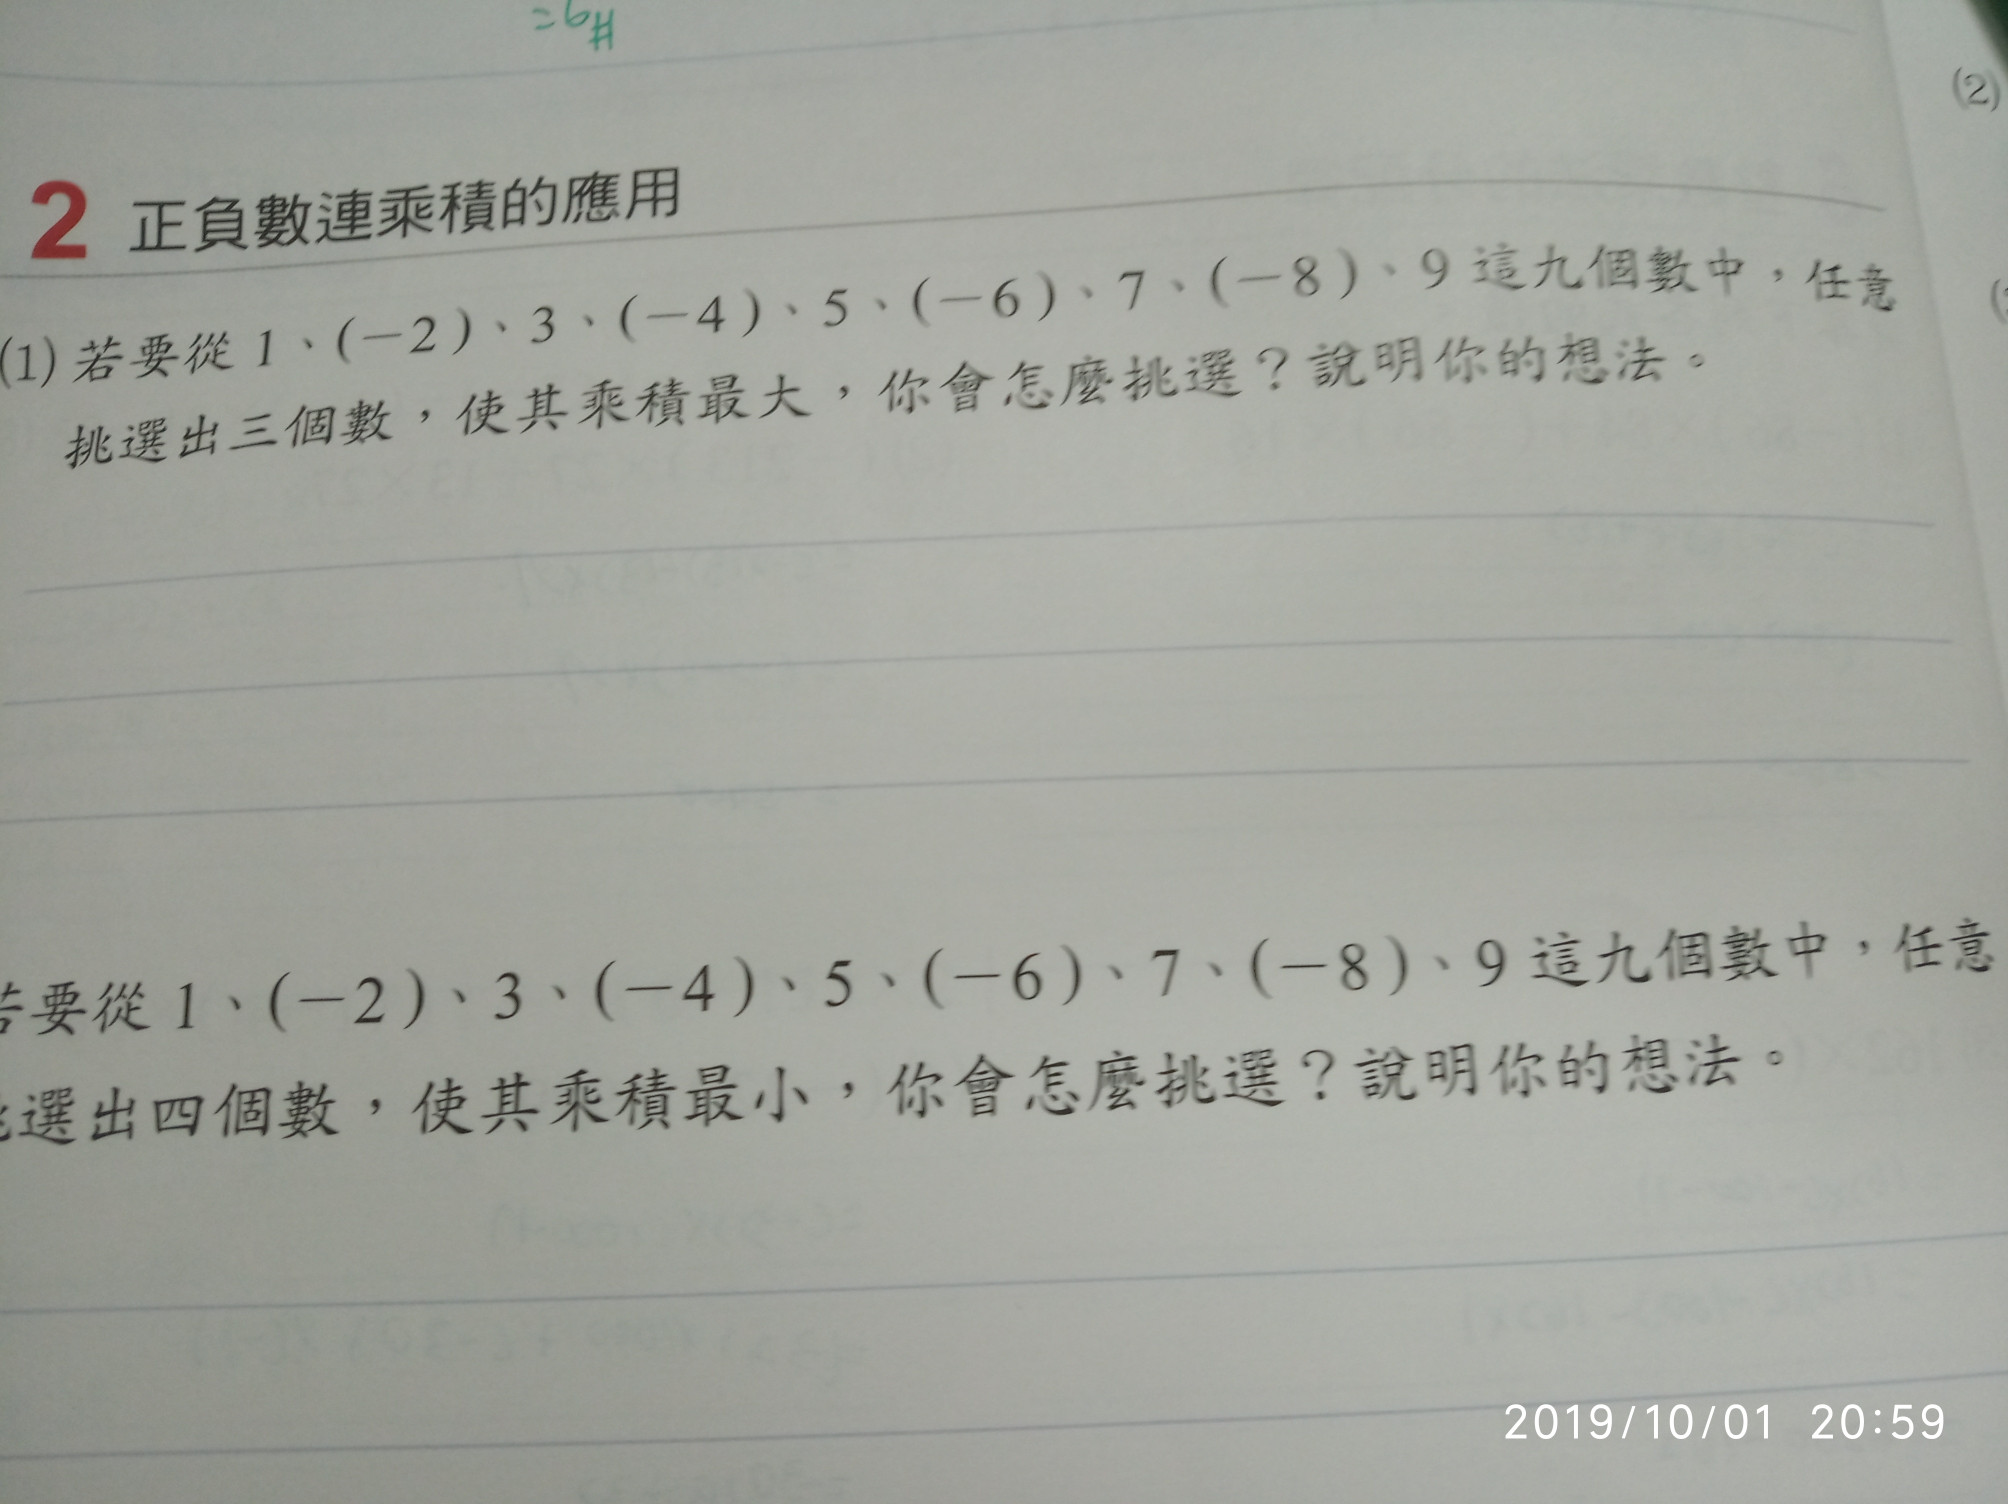 #9=
(2)
2 正負數連乘積的應用
(1) 若要從 1、(－2)、3、(－4)、5、(－6)、7、(－8)、9 這九個數中，任意
挑選出三個數，使其乘積最大，你會怎麼挑選？說明你的想法。
若要從 1、(－2)、3、(－4)、5、(－6)、7、(－8)、9 這九個數中，任意
挑選出四個數，使其乘積最小，你會怎麼挑選？說明你的想法。
2019/10/01 20:59